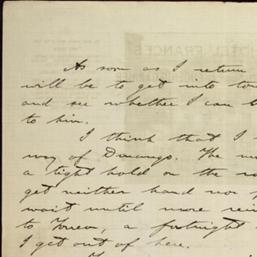 As soon as I return
will be to get into to
and see whether I can b
to him.
I think that I
way of Durango. The m
a tight hold on the
get neither hand nor
wait until more rei
to Torreon, a fortnight
I get out of here.